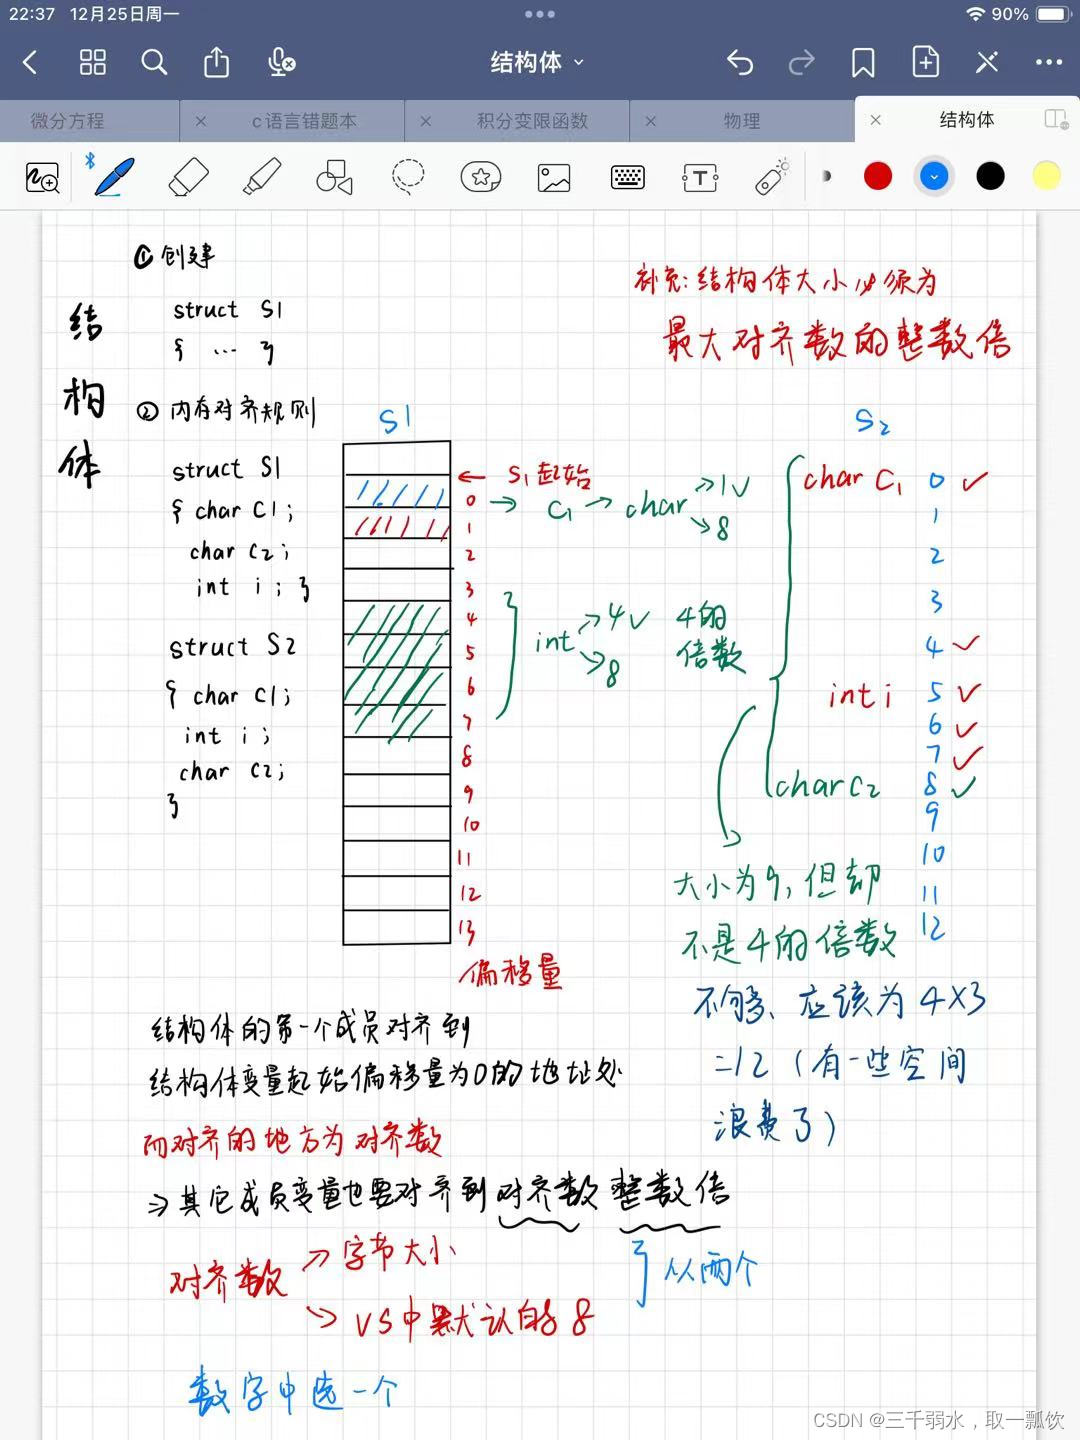 22:37 12月25日周一
90%
结构体
微分方程
c语言错题本
积分变限函数
物理
结构体
① 创建
结构体
struct S1
{ ... }
补充:结构体大小必须为
最大对齐数的整数倍
② 内存对齐规则
S1
S2
struct S1
{ char C1;
char C2;
int i; }
struct S2
{ char C1;
int i;
char C2;
}
← S1起始
0 → C1 → char →1✓
→8
1
2
3
4
5
6
7
8
9
10
11
12
13
偏移量
int →4✓ 4的
→8 倍数
char C1 0 ✓
1
2
3
4 ✓
int i 5 ✓
6 ✓
7 ✓
char C2 8 ✓
9
10
11
12
大小为9,但却
不是4的倍数
不够、应该为4×3
=12(有一些空间
浪费了)
结构体的第一个成员对齐到
结构体变量起始偏移量为0的地址处
而对齐的地方为对齐数
⇒其它成员变量也要对齐到对齐数整数倍
对齐数 → 字节大小
→ VS中默认的8
} 从两个
数字中选一个
CSDN @三千弱水，取一瓢饮